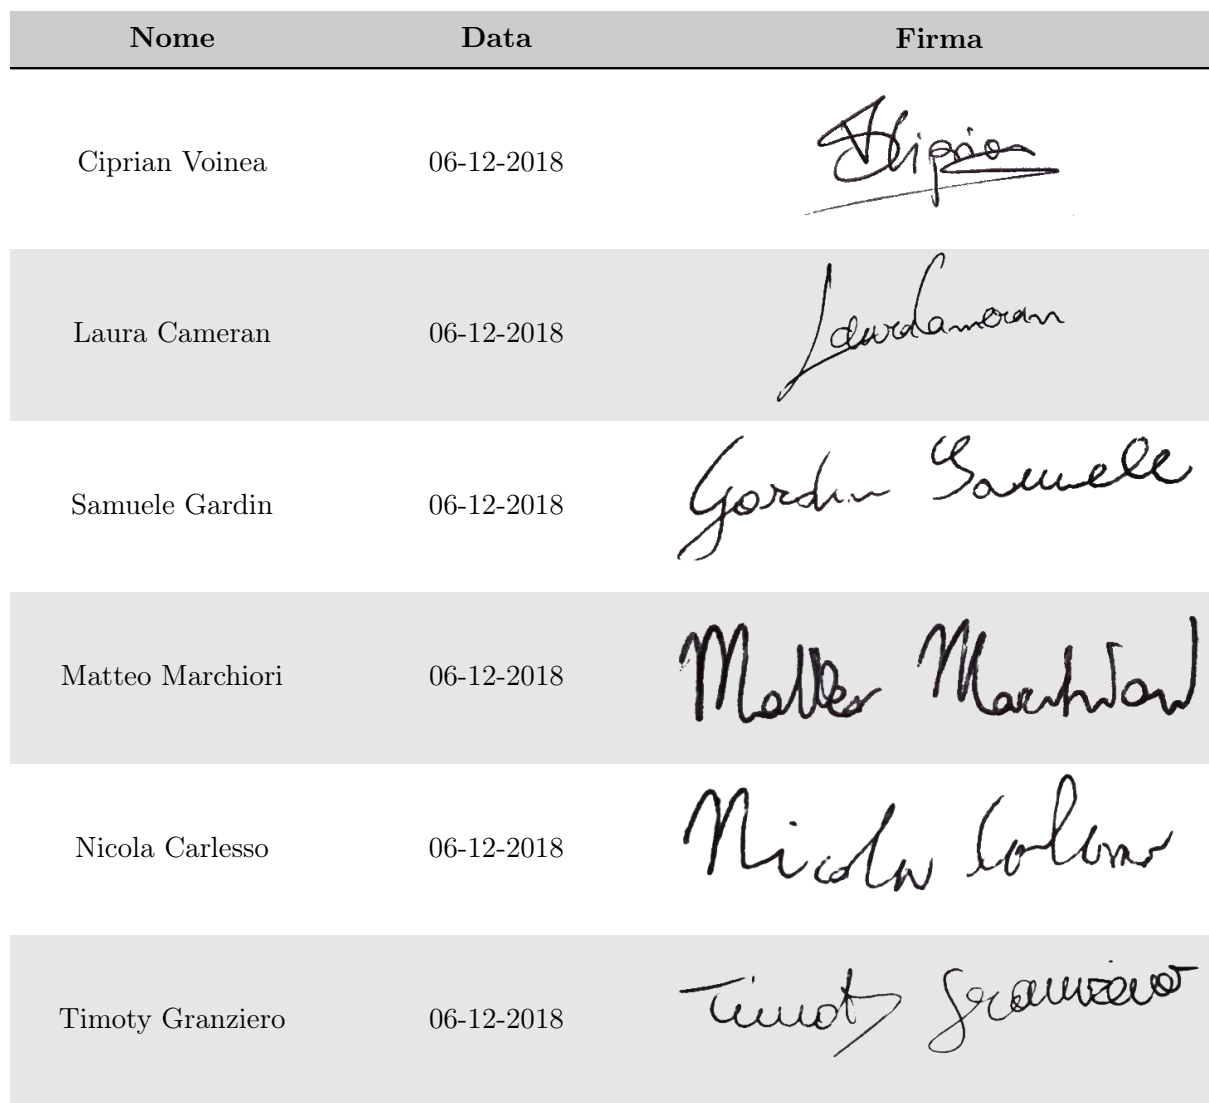 Nome Data Firma
Ciprian Voinea 06-12-2018 Ciprian
Laura Cameran 06-12-2018 Laura Cameran
Samuele Gardin 06-12-2018 Gardin Samuele
Matteo Marchiori 06-12-2018 Matteo Marchiori
Nicola Carlesso 06-12-2018 Nicola
Timoty Granziero 06-12-2018 Timoty Granziero